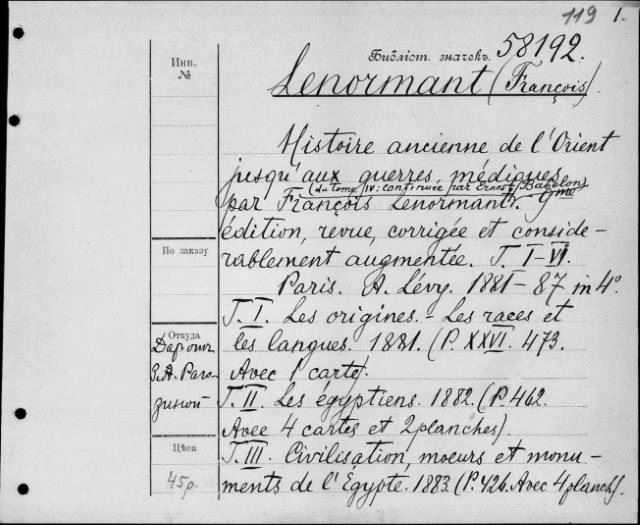 119 1.
Инв.
№
Библіот. значекъ 58192.
Lenormant (François).
Histoire ancienne de l'Orient
jusqu'aux guerres médiques
(du tome IV: continuée par Ernest Babelon)
par François Lenormant. 9me
édition, revue, corrigée et conside-
rablement augmentée. T. I-VI.
По заказу
Paris. A. Lévy. 1881-87 in 4°.
T. I. Les origines. - Les races et
Откуда
les langues. 1881. (P. XXVI. 473.
Avec 1 carte).
T. II. Les égyptiens. 1882. (P. 462.
Avec 4 cartes et 2 planches).
Цѣна
T. III. Civilisation, moeurs et monu-
45р.
ments de l'Égypte. 1883. (P. 426. Avec 4 planch).